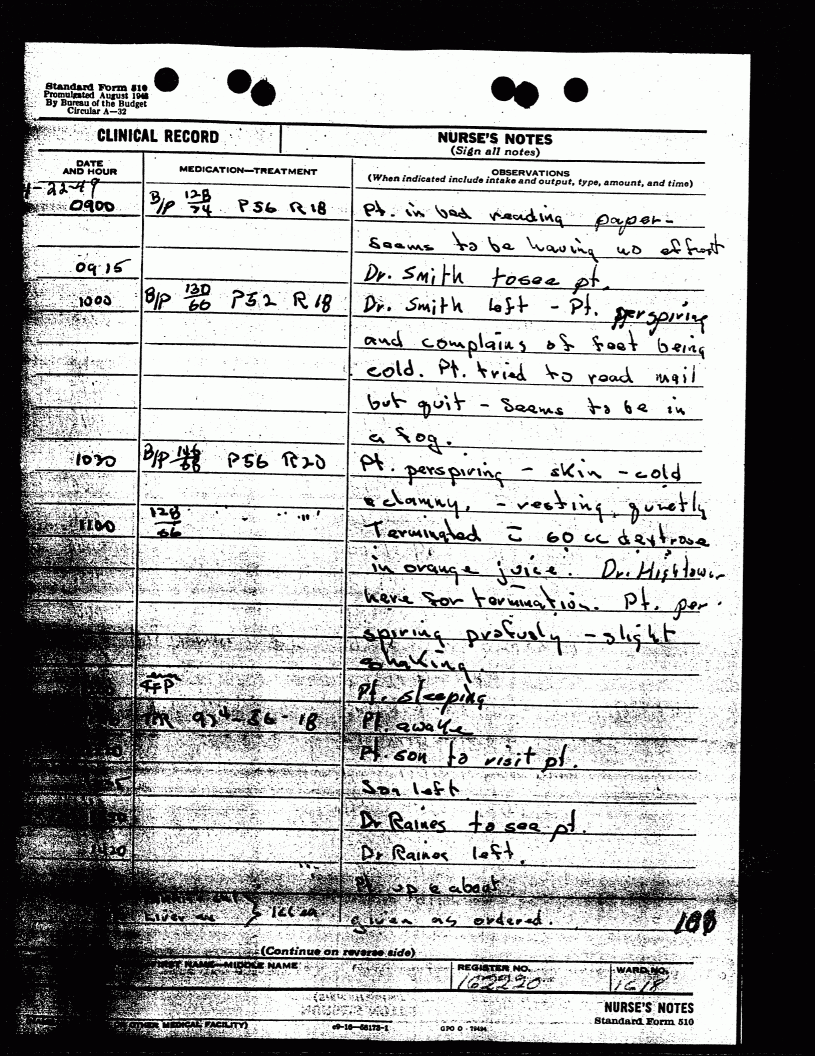 Standard Form 510
Promulgated August 1948
By Bureau of the Budget
Circular A—32
CLINICAL RECORD
NURSE'S NOTES
(Sign all notes)
DATE AND HOUR
MEDICATION—TREATMENT
OBSERVATIONS
(When indicated include intake and output, type, amount, and time)
-22-49
0900 B/P 128/74 P56 R18 Pt. in bed reading paper-
seems to be having no effect
0915 Dr. Smith to see pt.
1000 B/P 130/60 P52 R18 Dr. Smith left - Pt. perspiring
and complains of feet being
cold. Pt. tried to read mail
but quit - seems to be in
a fog.
1030 B/P P56 R20 Pt. perspiring - skin - cold
clammy, - resting quietly
1100 128/66 " " " Terminated c̄ 60 cc dextrose
in orange juice. Dr. Hightower
here for termination. Pt. per-
spiring profusly - slight
shaking.
Pt. sleeping
- 56 - 18 Pt. awake
Pt. son to visit pt.
Son left
Dr Raines to see pt.
1420 Dr Raines left.
Pt. up & about
Liver
given as ordered.
188
(Continue on reverse side)
FIRST NAME—MIDDLE NAME
REGISTER NO.
162220
WARD NO.
1618
NURSE'S NOTES
Standard Form 510
OTHER MEDICAL FACILITY)
GPO